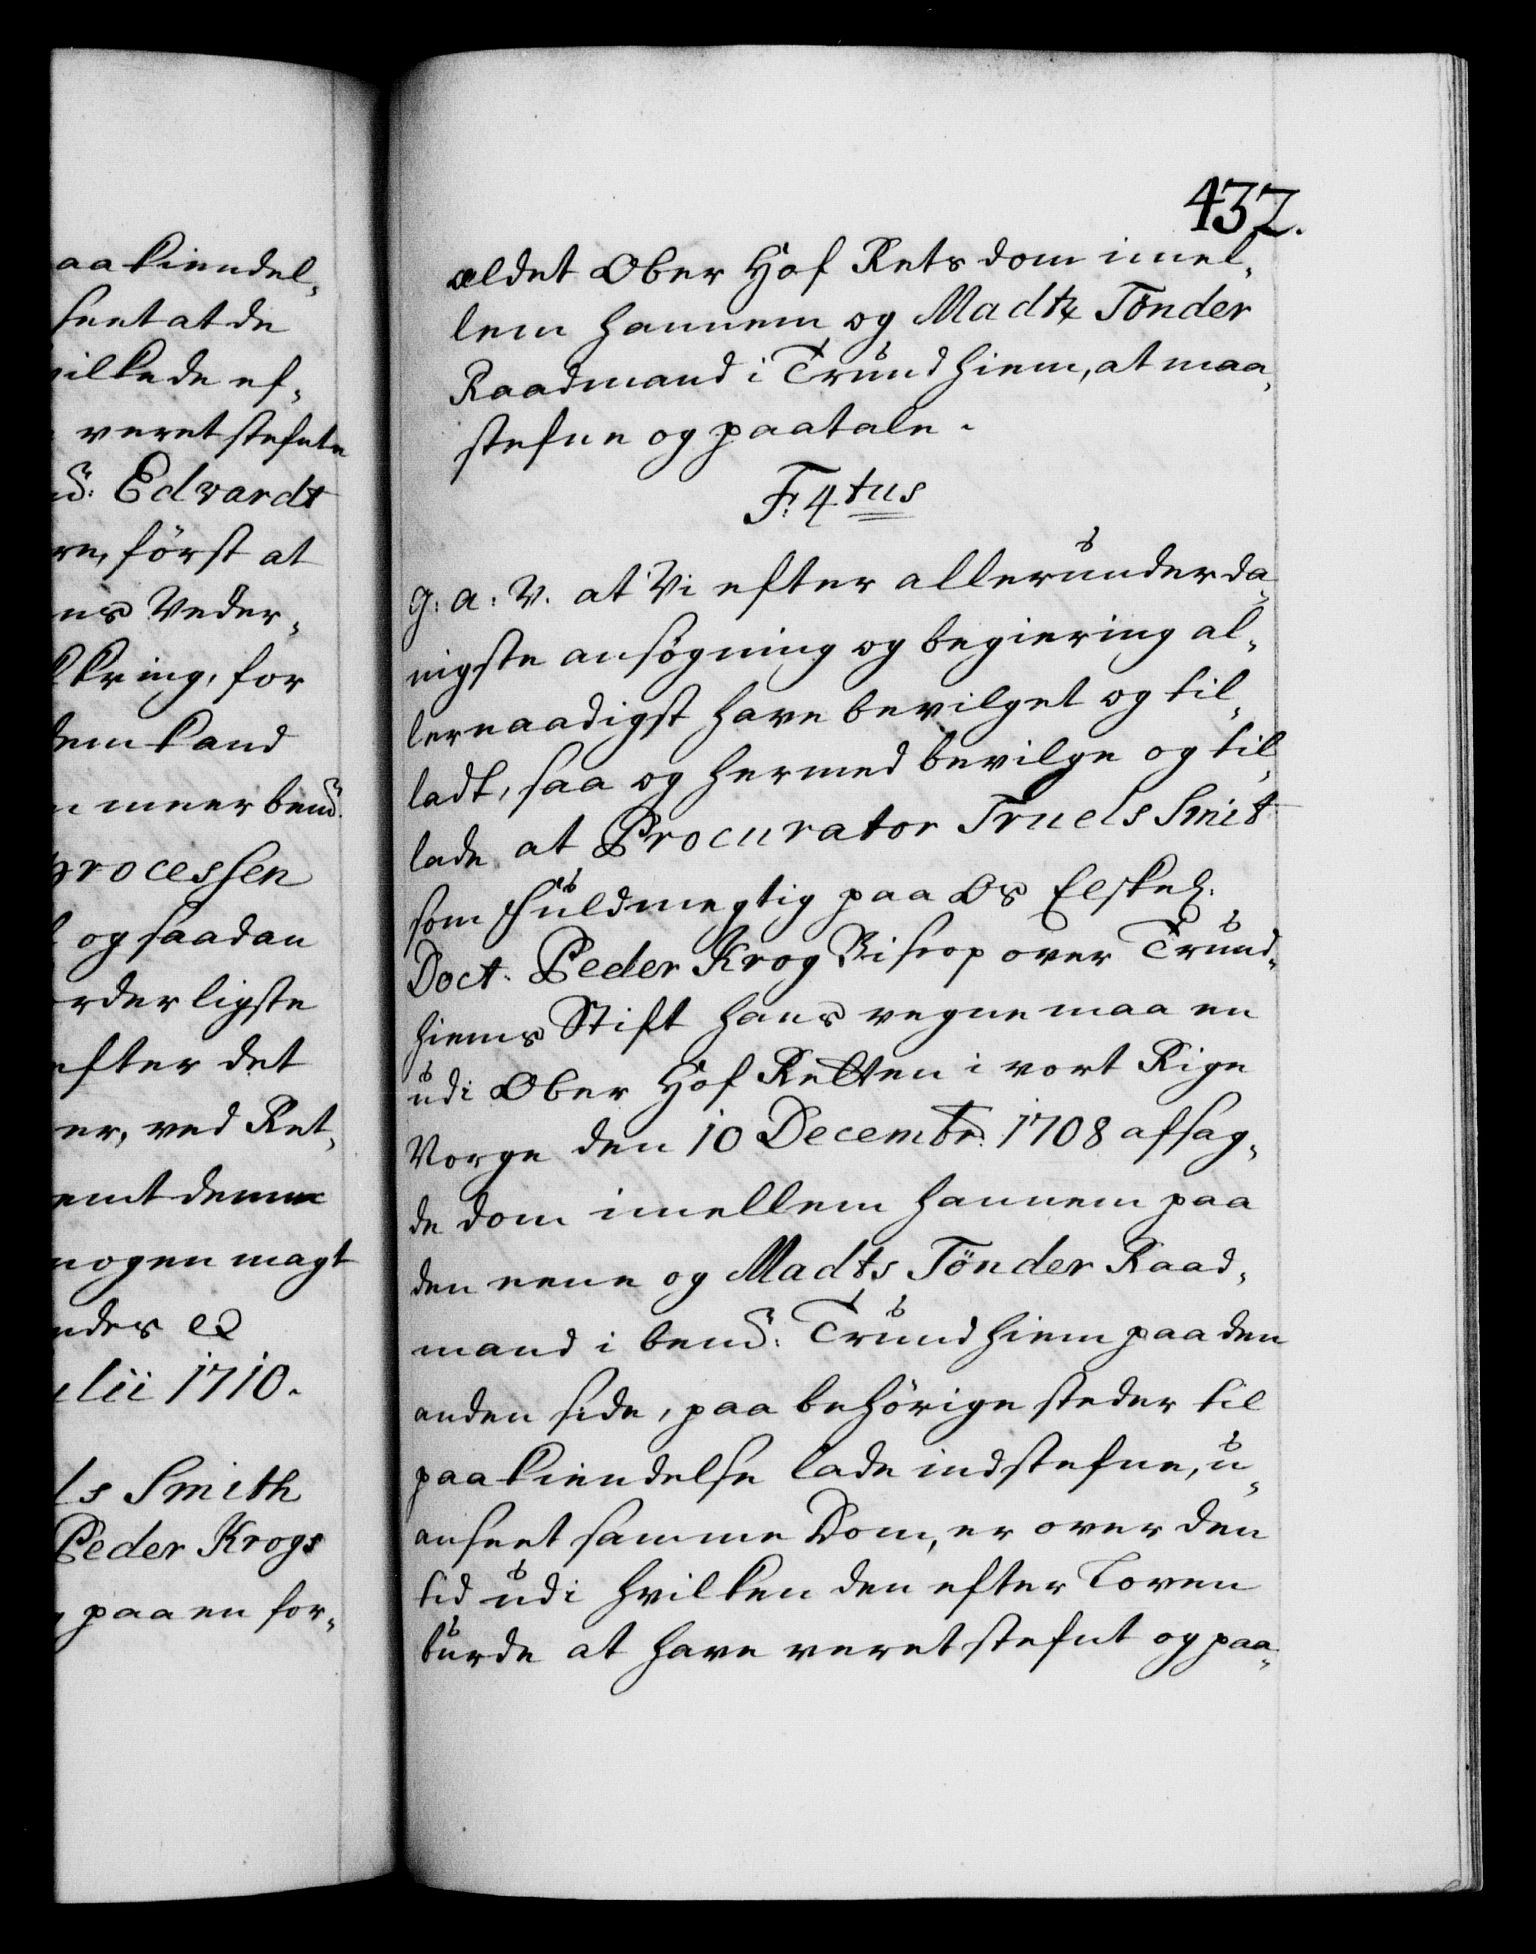 aa kiendel„
seet at de
vilkede ef„
veret stefnte
nd: Edvardt
re, först at
ns Veder„
kring, for
dem kand
meer bend.
processen
og saadan
rderligste
efter det
er, ved Ret„
emt demme
nogen magt
ndes
ulii 1710.
ls Smith
Peder Krogs
paa en for„
432.
ældet Ober Hof Rets dom imel„
lem hannem og Madtz Tönder
Raadmand i Trundhiem, at maa„
stefne og paatale.
F: 4tus
G: a: V. at Vi efter allerunderda„
nigste ansögning og begiering al„
lernaadigst have bevilget og til„
ladt, saa og hermed bevilge og til„
lade at Procurator Truels Smit
som fuldmegtig paa Os Elskel:
Doct. Peder Krog Biscop over Trund„
hiems Stift hans vegne maa en
udi Ober Hof Retten i vort Rige
Norge den 10 Decembr: 1708 afsag„
de dom imellem hannem paa
den eene og Madts Tönder Raad„
mand i bemd: Trundhiem paa den
anden side, paa behörige steder til
paakiendelse lade indstefne, u„
anseet samme Dom, er over den
tid udi hvilken den efter Loven
burde at have veret stefnt og paa„